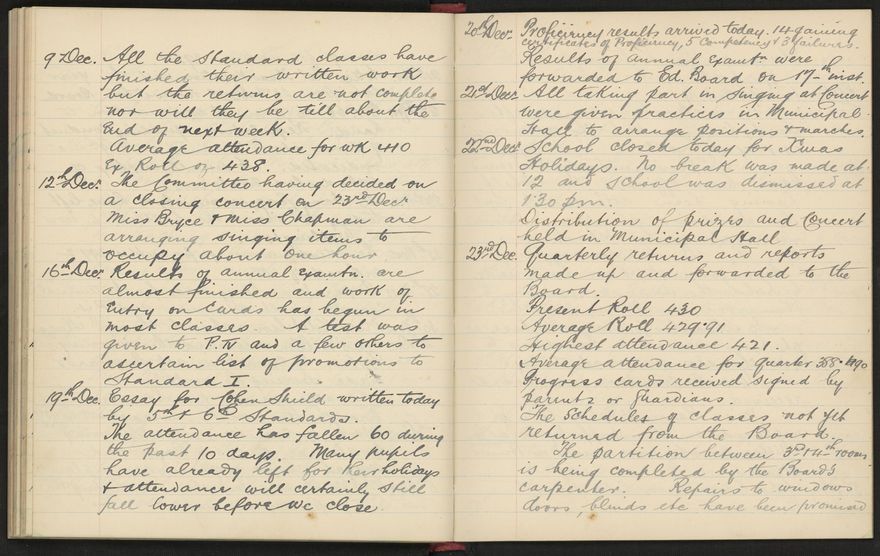 9 Dec. All the Standard classes have
finished their written work
but the returns are not complete
nor will they be till about the
End of next week.
Average attendance for wk 410
Ex Roll of 438.
12th Decr. The Committee having decided on
a closing concert on 23rd Decr
Miss Bryce & Miss Chapman are
arranging singing items to
occupy about one hour
16th Decr Results of annual Examtn. are
almost finished and work of
Entry on Cards has begun in
most classes. A test was
given to P.IV and a few others to
ascertain list of promotions to
Standard I.
19th Dec. Essay for Cohen Shield written today
by 5th & 6th Standards.
The attendance has fallen 60 during
the past 10 days. Many pupils
have already left for their holidays
& attendance will certainly still
fall lower before we close
20th Decr Proficiency results arrived today. 14 gaining
certificates of Proficiency, 5 Competency & 3 failures.
Results of annual Examtn were
forwarded to Ed. Board on 17th inst.
21st Decr All taking part in Singing at Concert
were given practices in Municipal
Hall to arrange positions & marches.
22nd Decr School closed today for Xmas
Holidays. No break was made at
12 and School was dismissed at
1.30 pm.
Distribution of prizes and Concert
held in Municipal Hall
23rd Dec. Quarterly returns and reports
made up and forwarded to the
Board.
Present Roll 430
Average Roll 429.91
Highest attendance 421.
Average attendance for quarter 388.
Progress cards received signed by
parents or Guardians.
The Schedules of classes not yet
returned from the Board.
The partition between 3rd & 4th rooms
is being completed by the Board's
carpenter. Repairs to windows
doors, blinds etc have been promised